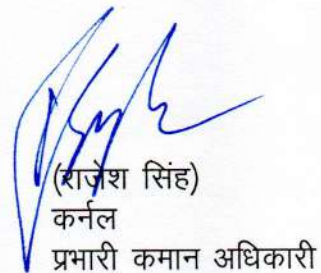 (राजेश सिंह)
कर्नल
प्रभारी कमान अधिकारी